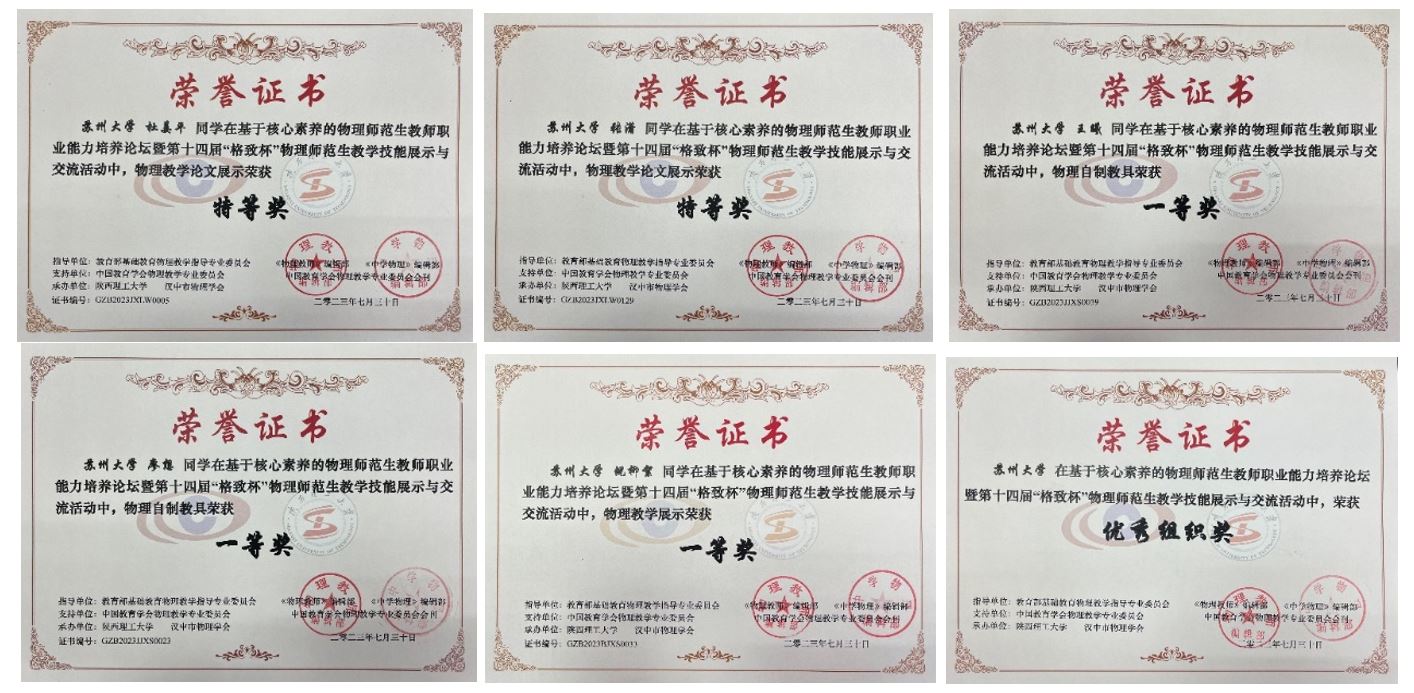 荣誉证书
苏州大学 杜真平 同学在基于核心素养的物理师范生教师职
业能力培养论坛暨第十四届“格致杯”物理师范生教学技能展示与
交流活动中，物理教学论文展示荣获
特等奖
指导单位：教育部基础教育物理教学指导专业委员会 《物理教师》编辑部 《中学物理》编辑部
支持单位：中国教育学会物理教学专业委员会 中国教育学会物理教学专业委员会会刊
承办单位：陕西理工大学 汉中市物理学会
证书编号：GZB2023JXLW0005 二零二三年七月三十日
荣誉证书
苏州大学 张潜 同学在基于核心素养的物理师范生教师职业
能力培养论坛暨第十四届“格致杯”物理师范生教学技能展示与交
流活动中，物理教学论文展示荣获
特等奖
指导单位：教育部基础教育物理教学指导专业委员会 《物理教师》编辑部 《中学物理》编辑部
支持单位：中国教育学会物理教学专业委员会 中国教育学会物理教学专业委员会会刊
承办单位：陕西理工大学 汉中市物理学会
证书编号：GZB2023JXLW0129 二零二三年七月三十日
荣誉证书
苏州大学 王曦 同学在基于核心素养的物理师范生教师职业
能力培养论坛暨第十四届“格致杯”物理师范生教学技能展示与交
流活动中，物理自制教具荣获
一等奖
指导单位：教育部基础教育物理教学指导专业委员会 《物理教师》编辑部 《中学物理》编辑部
支持单位：中国教育学会物理教学专业委员会 中国教育学会物理教学专业委员会会刊
承办单位：陕西理工大学 汉中市物理学会
证书编号：GZB2023JJXS0039 二零二三年七月三十日
荣誉证书
苏州大学 廖想 同学在基于核心素养的物理师范生教师职业
能力培养论坛暨第十四届“格致杯”物理师范生教学技能展示与交
流活动中，物理自制教具荣获
一等奖
指导单位：教育部基础教育物理教学指导专业委员会 《物理教师》编辑部 《中学物理》编辑部
支持单位：中国教育学会物理教学专业委员会 中国教育学会物理教学专业委员会会刊
承办单位：陕西理工大学 汉中市物理学会
证书编号：GZB2023JJXS0023 二零二三年七月三十日
荣誉证书
苏州大学 同学在基于核心素养的物理师范生教师职
业能力培养论坛暨第十四届“格致杯”物理师范生教学技能展示与
交流活动中，物理教学展示荣获
一等奖
指导单位：教育部基础教育物理教学指导专业委员会 《物理教师》编辑部 《中学物理》编辑部
支持单位：中国教育学会物理教学专业委员会 中国教育学会物理教学专业委员会会刊
承办单位：陕西理工大学 汉中市物理学会
证书编号：GZB2023BJXS0033 二零二三年七月三十日
荣誉证书
苏州大学 在基于核心素养的物理师范生教师职业能力培养论坛
暨第十四届“格致杯”物理师范生教学技能展示与交流活动中，荣获
优秀组织奖
指导单位：教育部基础教育物理教学指导专业委员会 《物理教师》编辑部 《中学物理》编辑部
支持单位：中国教育学会物理教学专业委员会 中国教育学会物理教学专业委员会会刊
承办单位：陕西理工大学 汉中市物理学会
二零二三年七月三十日